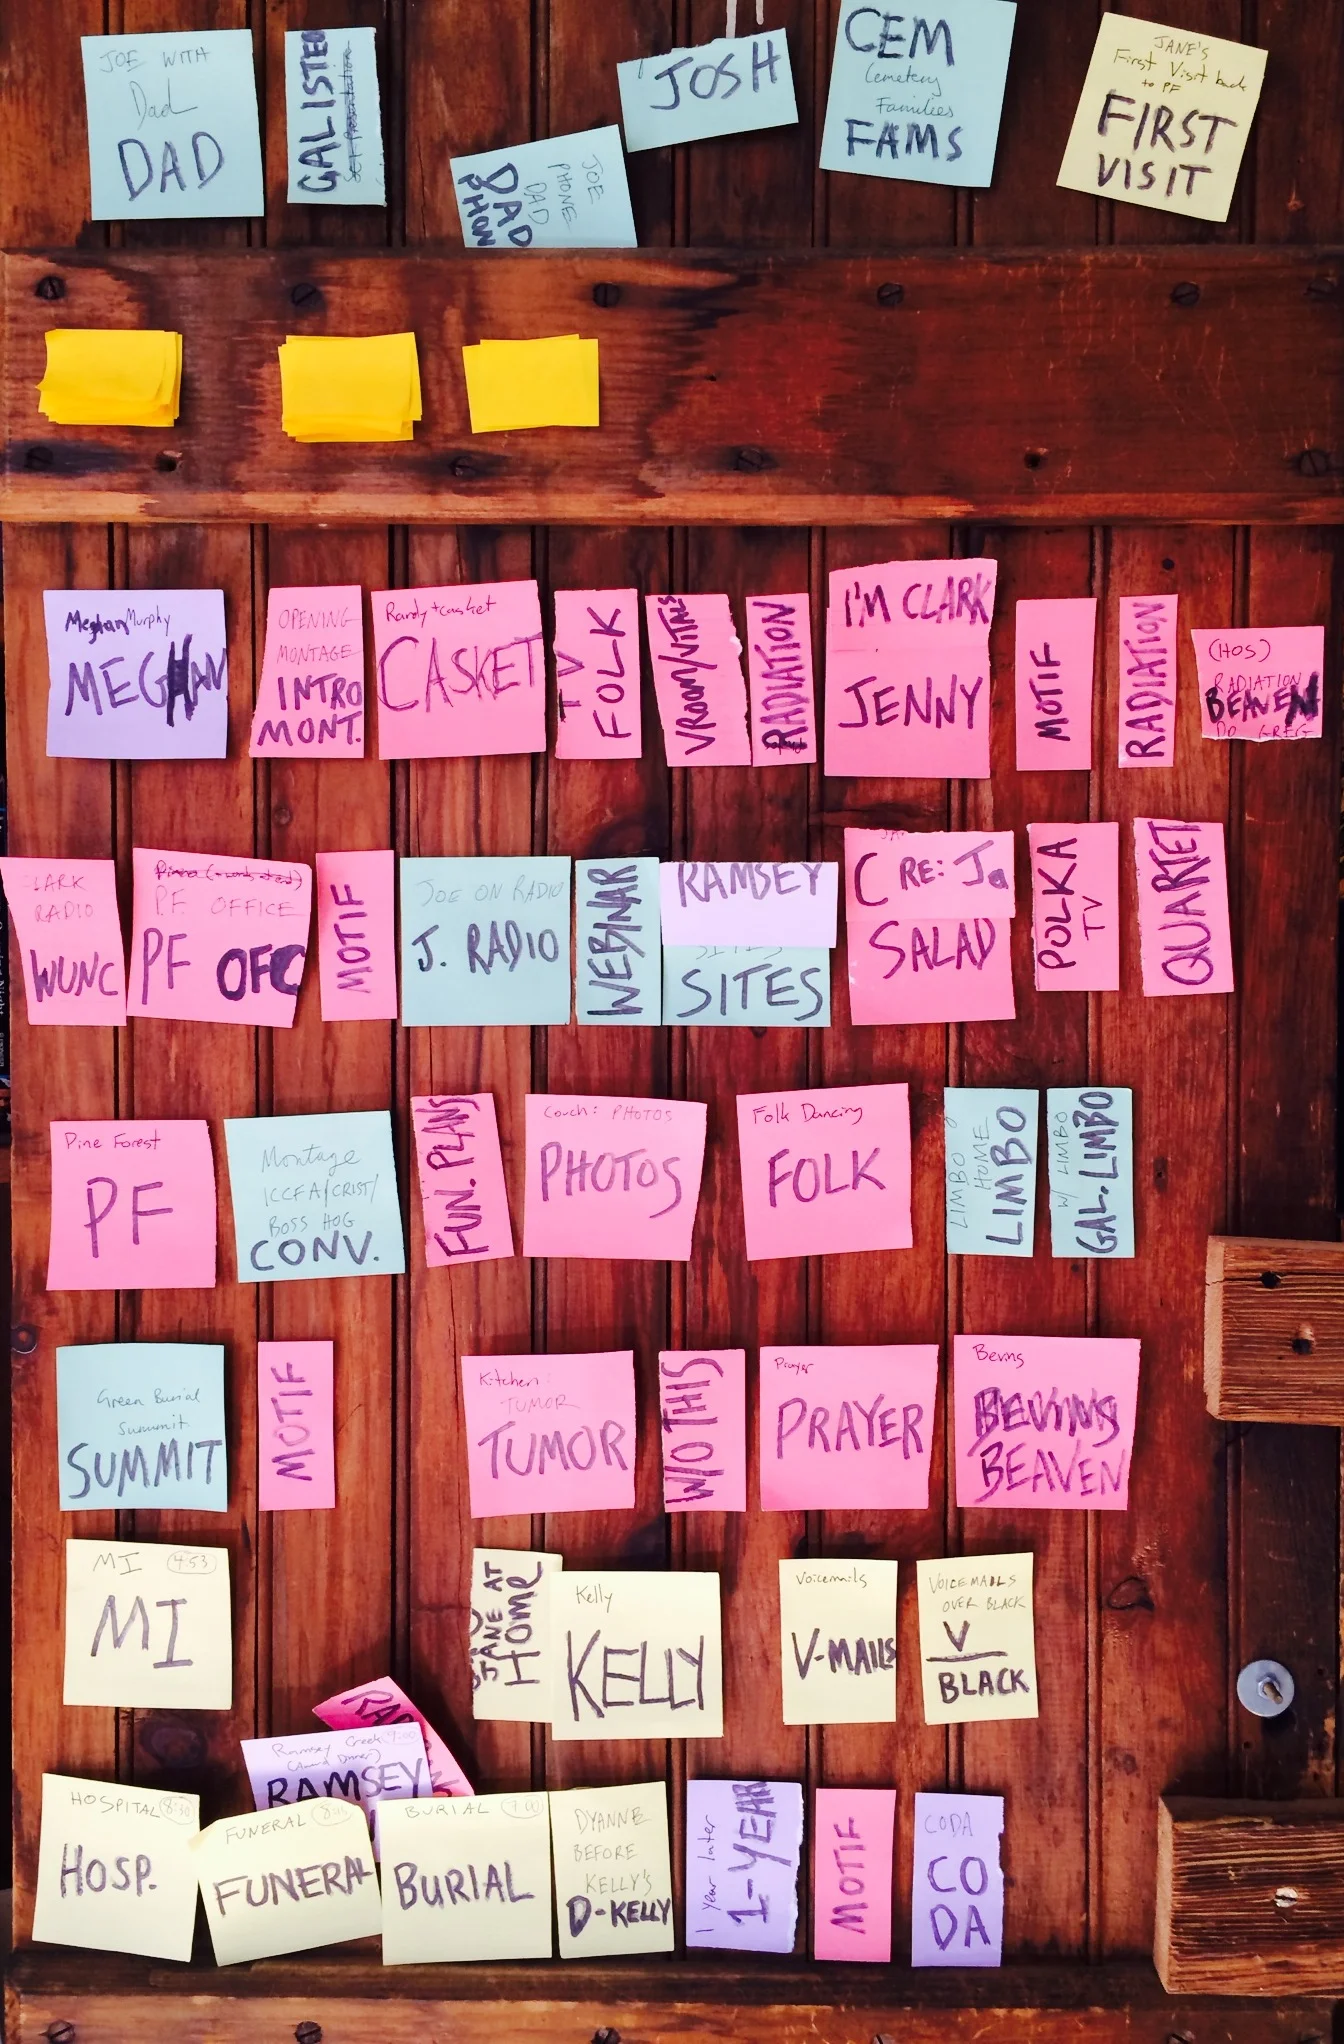 JOE WITH
Dad
DAD
GALISTEO
Set Presentation
JOE
PHONE
DAD
DAD
PHON
JOSH
CEM
Cemetery
Families
FAMS
JANE'S
First Visit back
to PF
FIRST
VISIT
Meghan Murphy
MEGHAN
OPENING
MONTAGE
INTRO
MONT.
Randy + casket
CASKET
TV
FOLK
VROOM/VITALS
RADIATION
I'M CLARK
JENNY
MOTIF
RADIATION
(HOS)
RADIATION
BEAVEN
DO GREG
CLARK
RADIO
WUNC
P.F. OFFICE
PF OFC
MOTIF
JOE ON RADIO
J. RADIO
WEBINAR
RAMSEY
SITES
SITES
C RE: Ja
SALAD
POLKA
TV
QUARTET
Pine Forest
PF
Montage
ICCFA/CRIST/
BOSS HOG
CONV.
FUN. PLANS
Couch: PHOTOS
PHOTOS
Folk Dancing
FOLK
LIMBO @
HOME
LIMBO
W/ LIMBO
GAL. LIMBO
Green Burial
Summit
SUMMIT
MOTIF
Kitchen:
TUMOR
TUMOR
W/O THIS
Prayer
PRAYER
Bevins
BEVINS
BEAVEN
MI 4:53
MI
JANE AT
HOME
Kelly
KELLY
Voicemails
V-MAILS
VOICEMAILS
OVER BLACK
V
BLACK
Ramsey Creek 9:00
RAMSEY
HOSPITAL 8:30
HOSP.
FUNERAL
FUNERAL
BURIAL 7:00
BURIAL
DYANNE
BEFORE
KELLY'S
D-KELLY
1 year later
1-YEAR
MOTIF
CODA
CO
DA